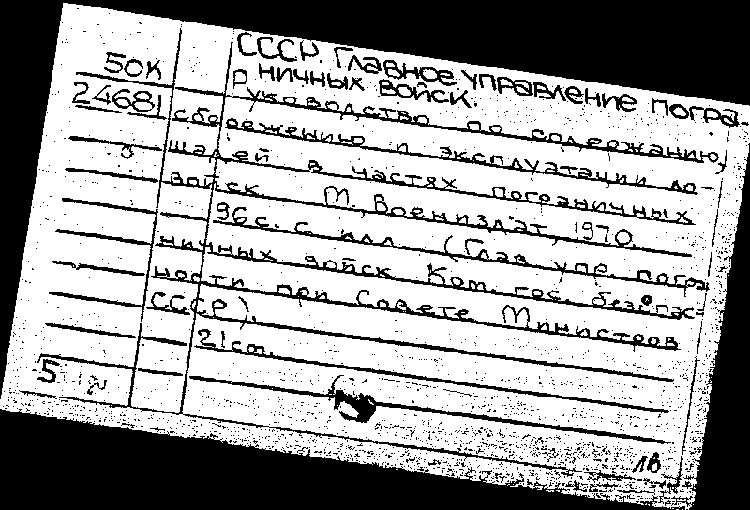 СССР. Главное управление погра-
50К ничных войск.
24681 Руководство по содержанию,
сбережению и эксплуатации ло-
шадей в частях пограничных
войск М., Воениздат, 1970.
96 с. с илл. (Глав. упр. погра
ничных войск Ком. гос. безопас=
ности при Совете Министров
СССР).
21 см.
5